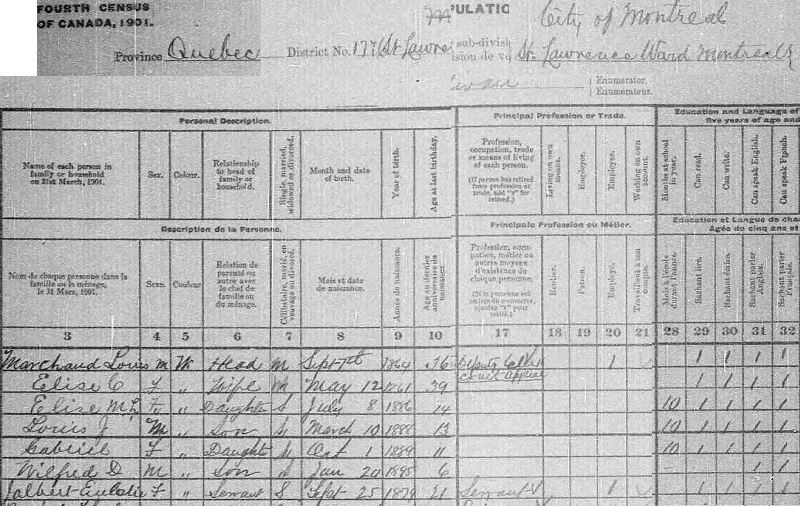 FOURTH CENSUS
OF CANADA, 1901.
PULATIO
City of Montreal
Province Quebec District No. 177 St Lawre sub-divisi St. Lawrence Ward Montreal
ision de vo
Enumerator.
Enumerateur.
Personal Description. Principal Profession or Trade. Education and Language of
five years of age and
Name of each person in family or household on 31st March, 1901. Sex. Colour. Relationship to head of family or household. Single, married, widowed or divorced. Month and date of birth. Year of birth. Age at last birthday. Profession, occupation, trade or means of living of each person. (If person has retired from profession or trade, add "r" for retired.) Living on own means. Employer. Employee. Working on own account. Months at school in year. Can read. Can write. Can speak English. Can speak French.
Description de la Personne. Principale Profession ou Métier. Education et Langue de cha
Agée de cinq ans et
Nom de chaque personne dans la famille ou le ménage, le 31 Mars, 1901. Sexe. Couleur Relation de parenté ou autre avec le chef de famille ou du ménage. Célibataire, marié, en veuvage ou divorcé. Mois et date de naissance. Année de naissance. Age au dernier anniversaire de naissance. Profession, occupation, métier ou autres moyens d'existence de chaque personne. Rentier. Patron. Employé. Travaillant à son compte. Mois à l'école durant l'année. Sachant lire. Sachant écrire. Sachant parler Anglais. Sachant parler Français.
3 4 5 6 7 8 9 10 17 18 19 20 21 28 29 30 31 32
Marchand Louis M W Head M Sept 1864 36 Deputy 1 1 1 1 1
Court Appeal
Elise C F " Wife M May 12 1861 39 1 1 1 1
Elise M L F " Daughter S July 8 1886 14 10 1 1 1 1
Louis J M " Son S March 10 1888 13 10 1 1 1 1
Gabriel F " Daught S Oct 1 1889 11 10 1 1 1 1
Wilfred D M " Son S Jan 20 1895 6 1 1
Jalbert Eulalie F " Servant S Sept 25 1879 21 Servant 1 1 1 1 1